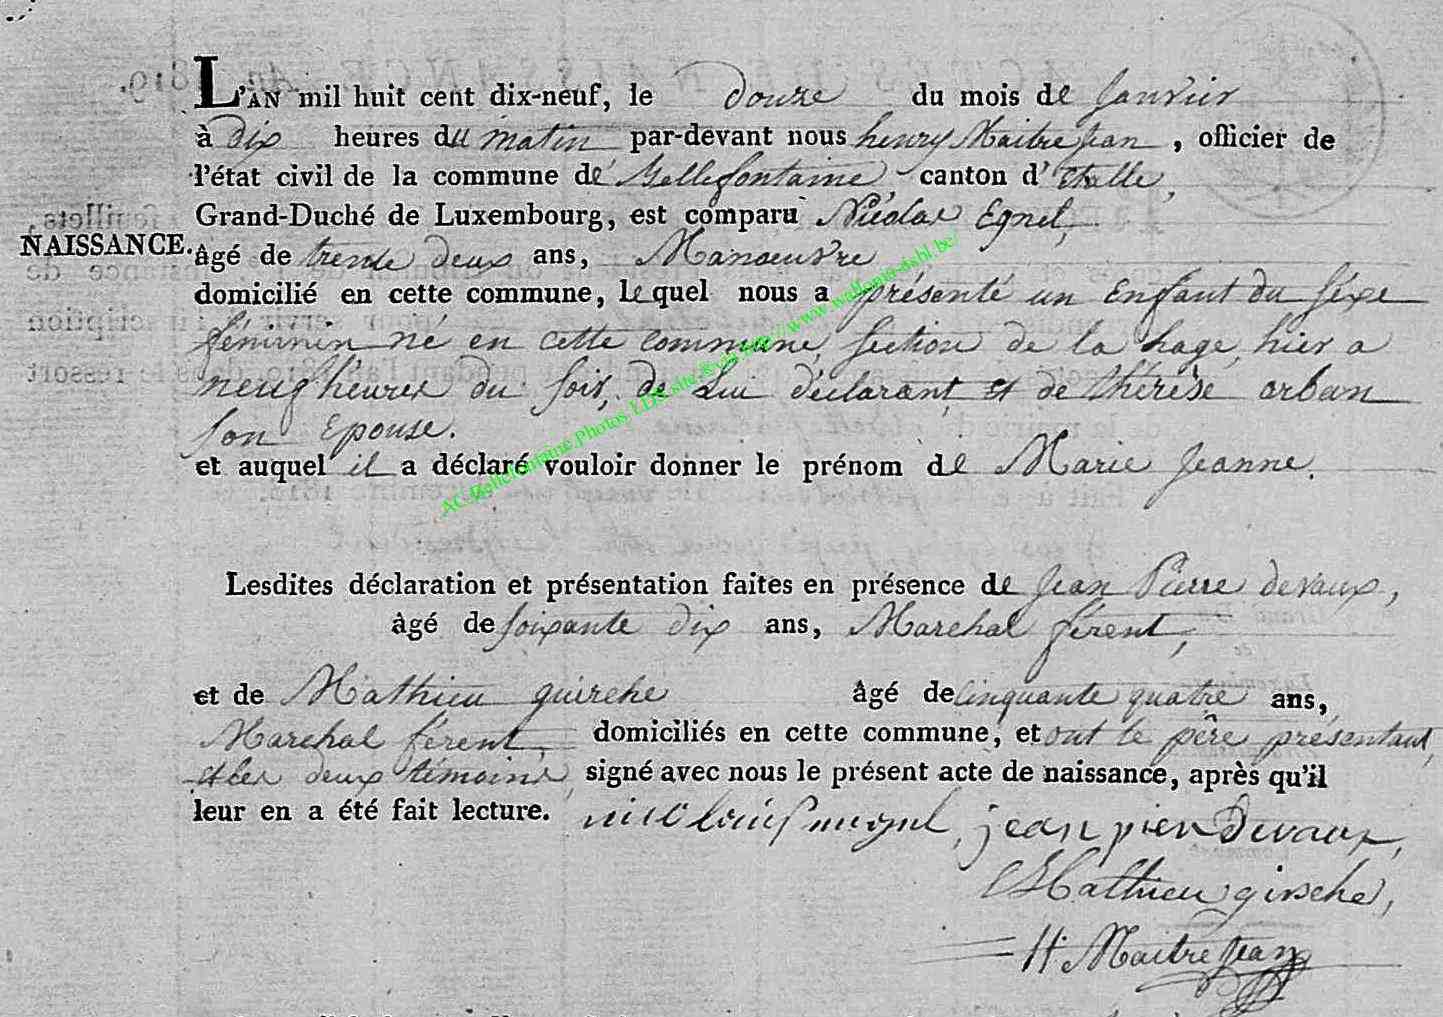 L'AN mil huit cent dix-neuf, le douze du mois de Janvier
à dix heures du matin par-devant nous henry Maitrejean, officier de
l'état civil de la commune de Bellefontaine, canton d'Etalle,
Grand-Duché de Luxembourg, est comparu Nicolas Egnel,
NAISSANCE.
âgé de trente deux ans, Manoeuvre
domicilié en cette commune, lequel nous a présenté un Enfant du sexe
féminin né en cette commune, section de la hage, hier a
neuf heures du soir, de Lui déclarant, et de thérèse orban
son Epouse.
et auquel il a déclaré vouloir donner le prénom de Marie Jeanne.
AC Bellefontaine Photos LDS site http://www.wallonia-asbl.be/
Lesdites déclaration et présentation faites en présence de Jean Pierre devaux,
âgé de soixante dix ans, Marchal férent,
et de Mathieu guirche âgé de cinquante quatre ans,
Marchal ferent, domiciliés en cette commune, et ont le père présentant,
et les deux témoins, signé avec nous le présent acte de naissance, après qu'il
leur en a été fait lecture.
jean pier Devaux,
Mathieu girsche,
H: MaitreJean